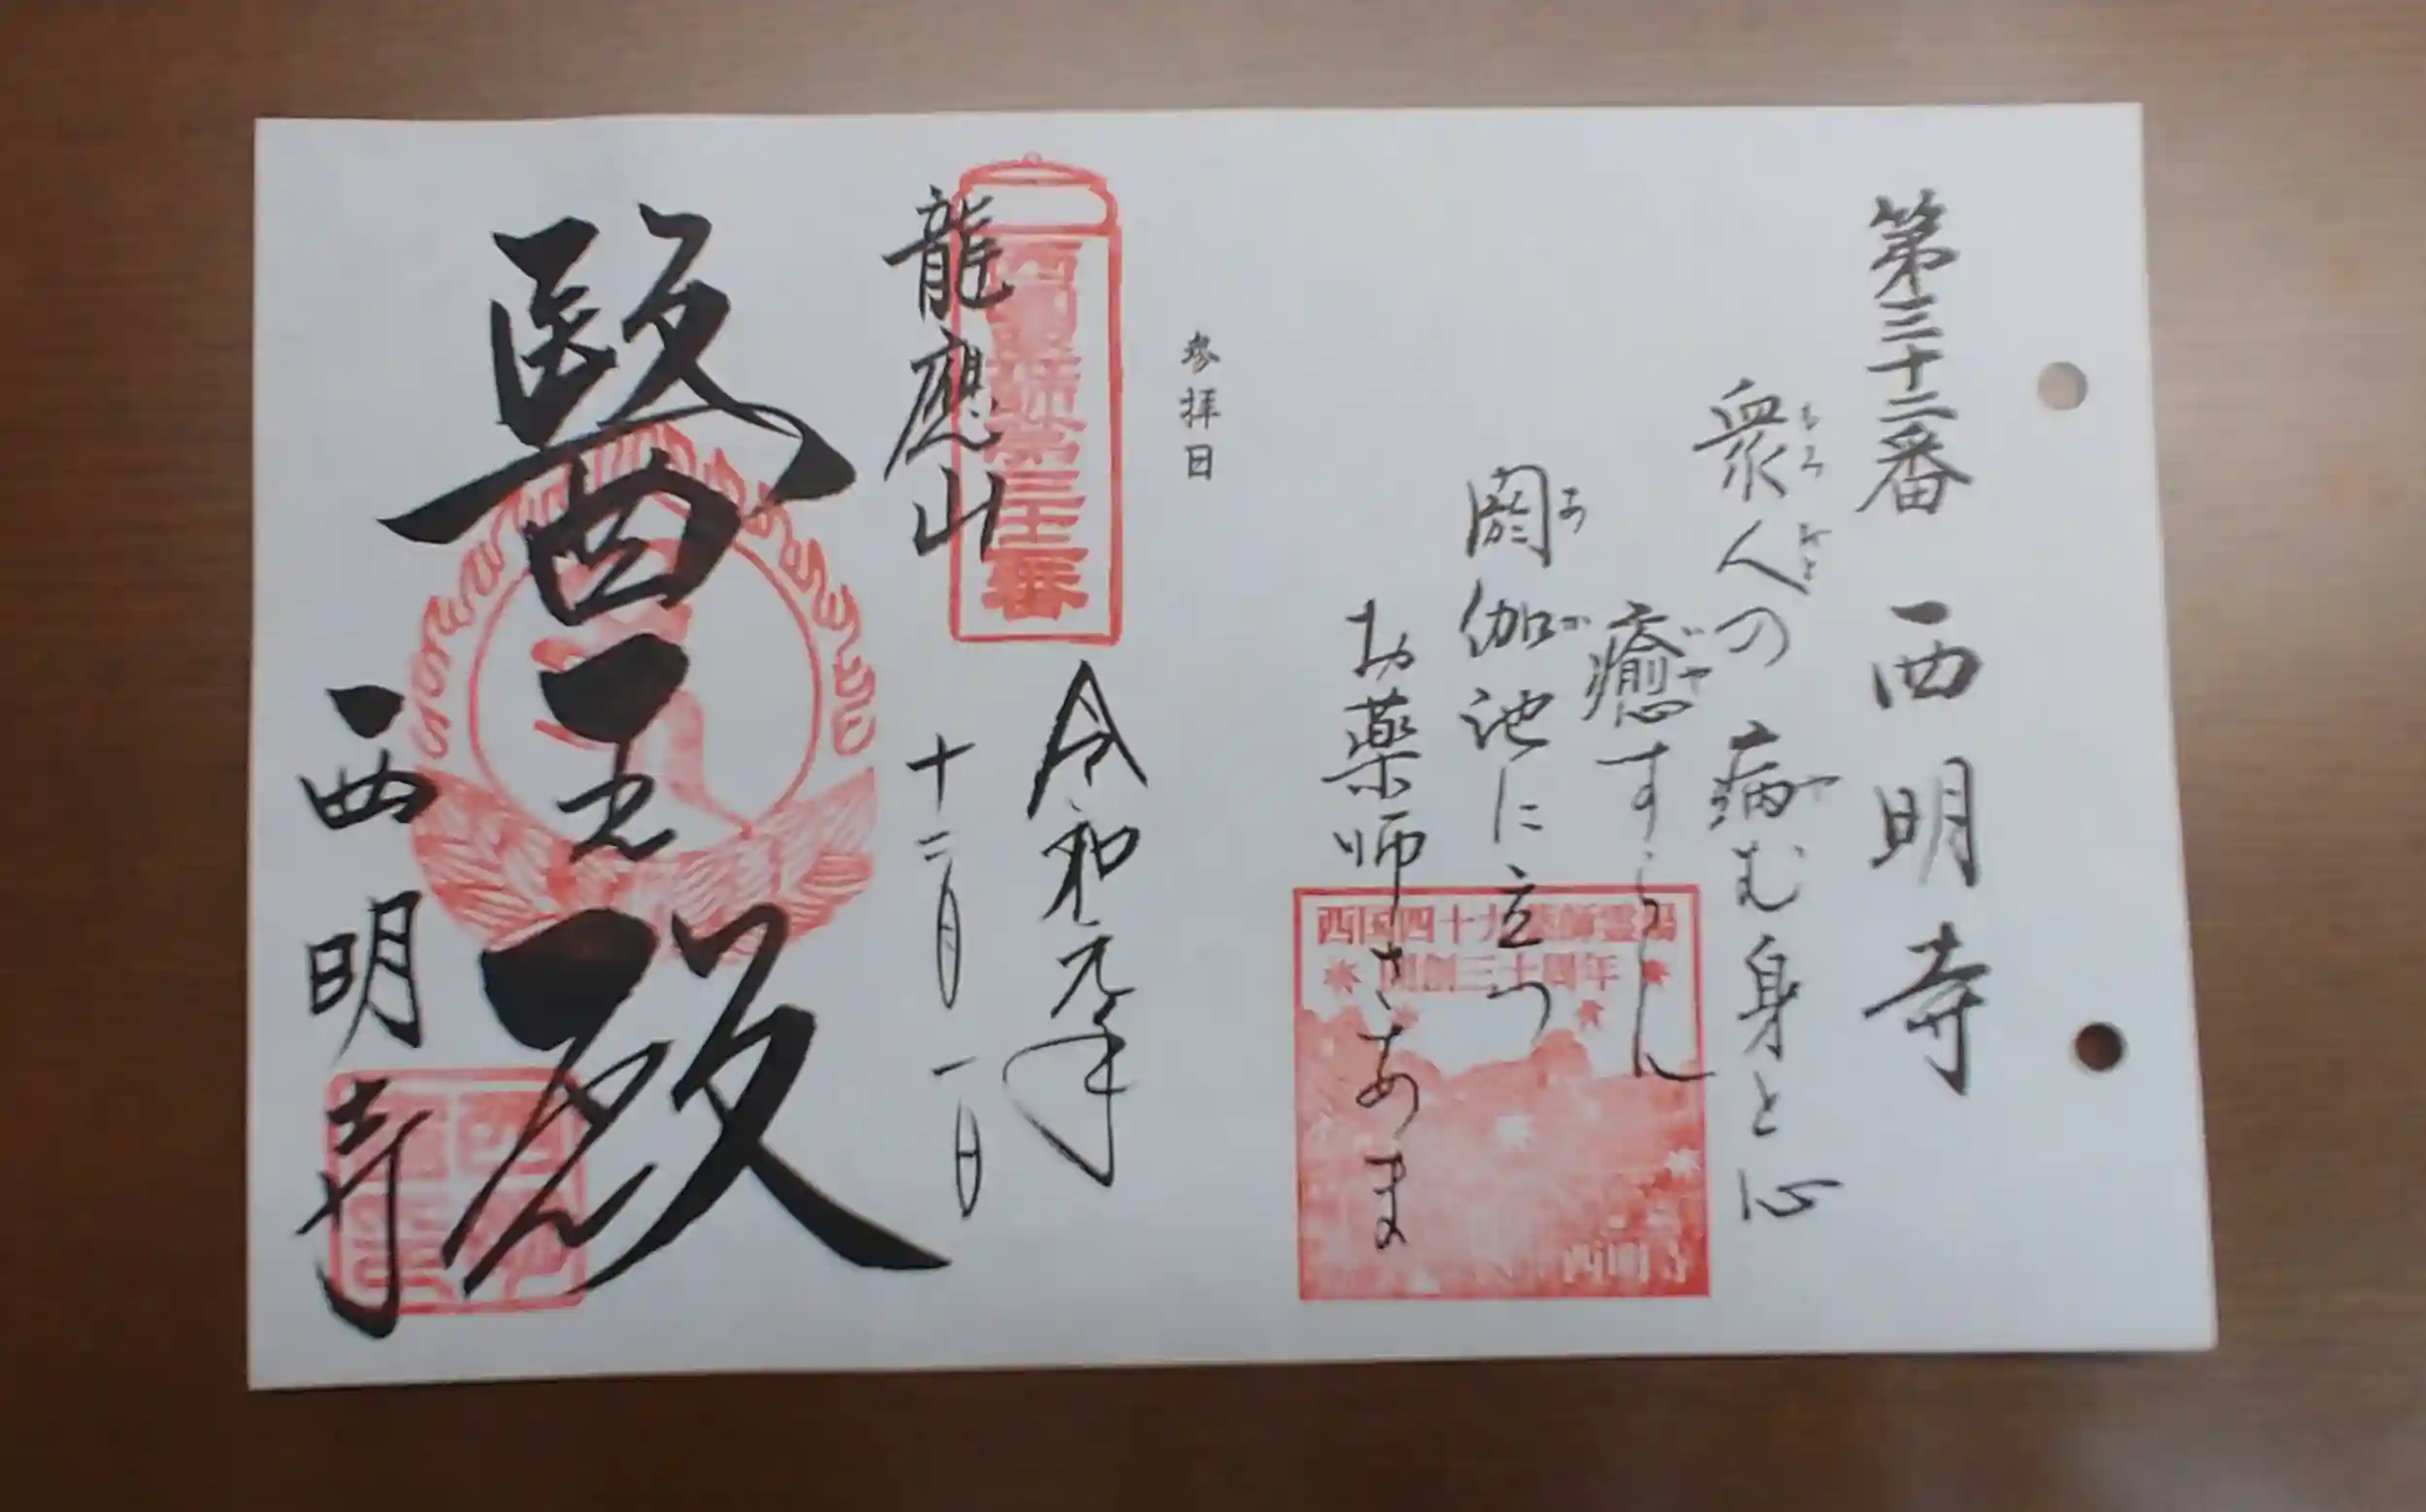 第三十二番 西明寺
衆人の病む身と心
もろ びと や
癒すらん
いや
閼伽池に立つ
あ か
お薬師さあま
西国四十九薬師霊場
開創三十周年
西明寺
参拝日
西国薬師第三十二番
令和元年
十二月一日
龍應山
醫王殿
西明寺